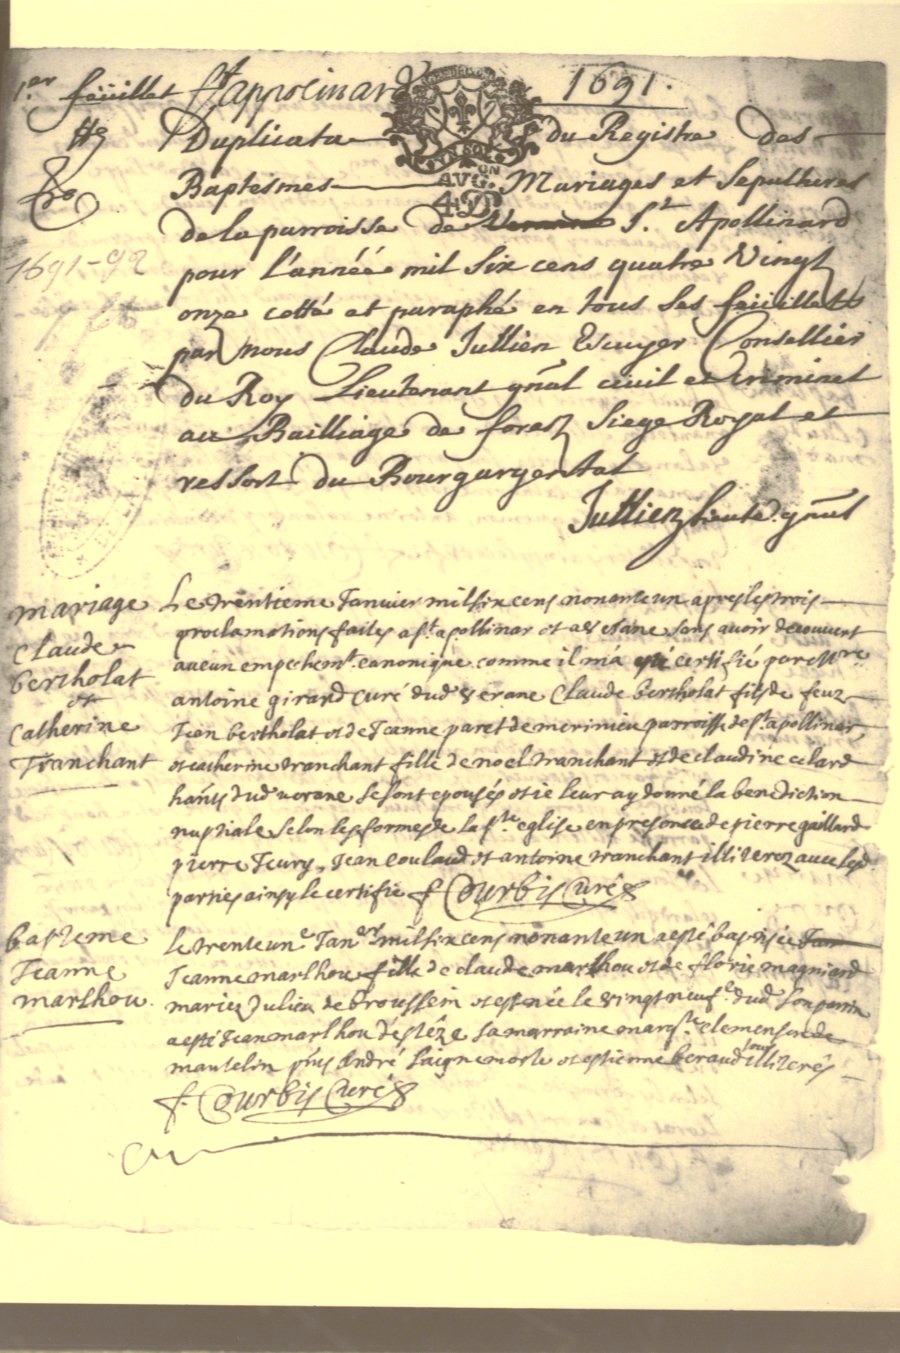 1.er feüillet St appolinard 1691.
Duplicata du Registre des
Baptesmes Mariages et sepultures
AUG. ON
4 D
de la parroisse de St. Apollinard
1691-92
pour l'année mil six cens quatre Vingt
onze cotté et paraphé en tous ses feüillets
par nous Claude Jullien Escuyer Conseillier
du Roy Lieutenant gñal civil et criminel
au Bailliage de forest siege Royal et
ressort du Bourgargental
Jullien Lieute. gñal
mariage
Claude
bertholat
et
Catherine
Tranchant
Le trentieme Janvier mil six cens nonante un apres les trois
proclamations faites a st. apollinar et a verane sans avoir decouvert
aucun empechemt. canonique comme il m'a esté certifié par Mre.
antoine girard Curé dud verane Claude bertholat fils de feuz
Jean bertholat et de Jeanne paret de merinieu parroisse de st. apollinar,
et catherine tranchant fille de noel tranchant et de claudine celard
hants dud verane se sont epousés et ie leur ay donné la benediction
nuptiale selon les formes de la ste eglise en presence de pierre gaillard
pierre Teury, Jean coulaud et antoine tranchant illiterez avec les d.
parties ainsy le certifie f Courbis Curé
bapteme
Jeanne
marlhou.
Le trente une Janer mil six cens nonante un a esté baptisée
Jeanne marlhou fille de claude marlhou et de florie magniard
mariez du lieu de broussein et est née le vingt neufe. dud son parrin
a esté Jean marlhou de stéze sa marraine margte. clemenson de
mantelin pnts André saignemorte et estienne beraud tous illiterés
f. Courbis Curé